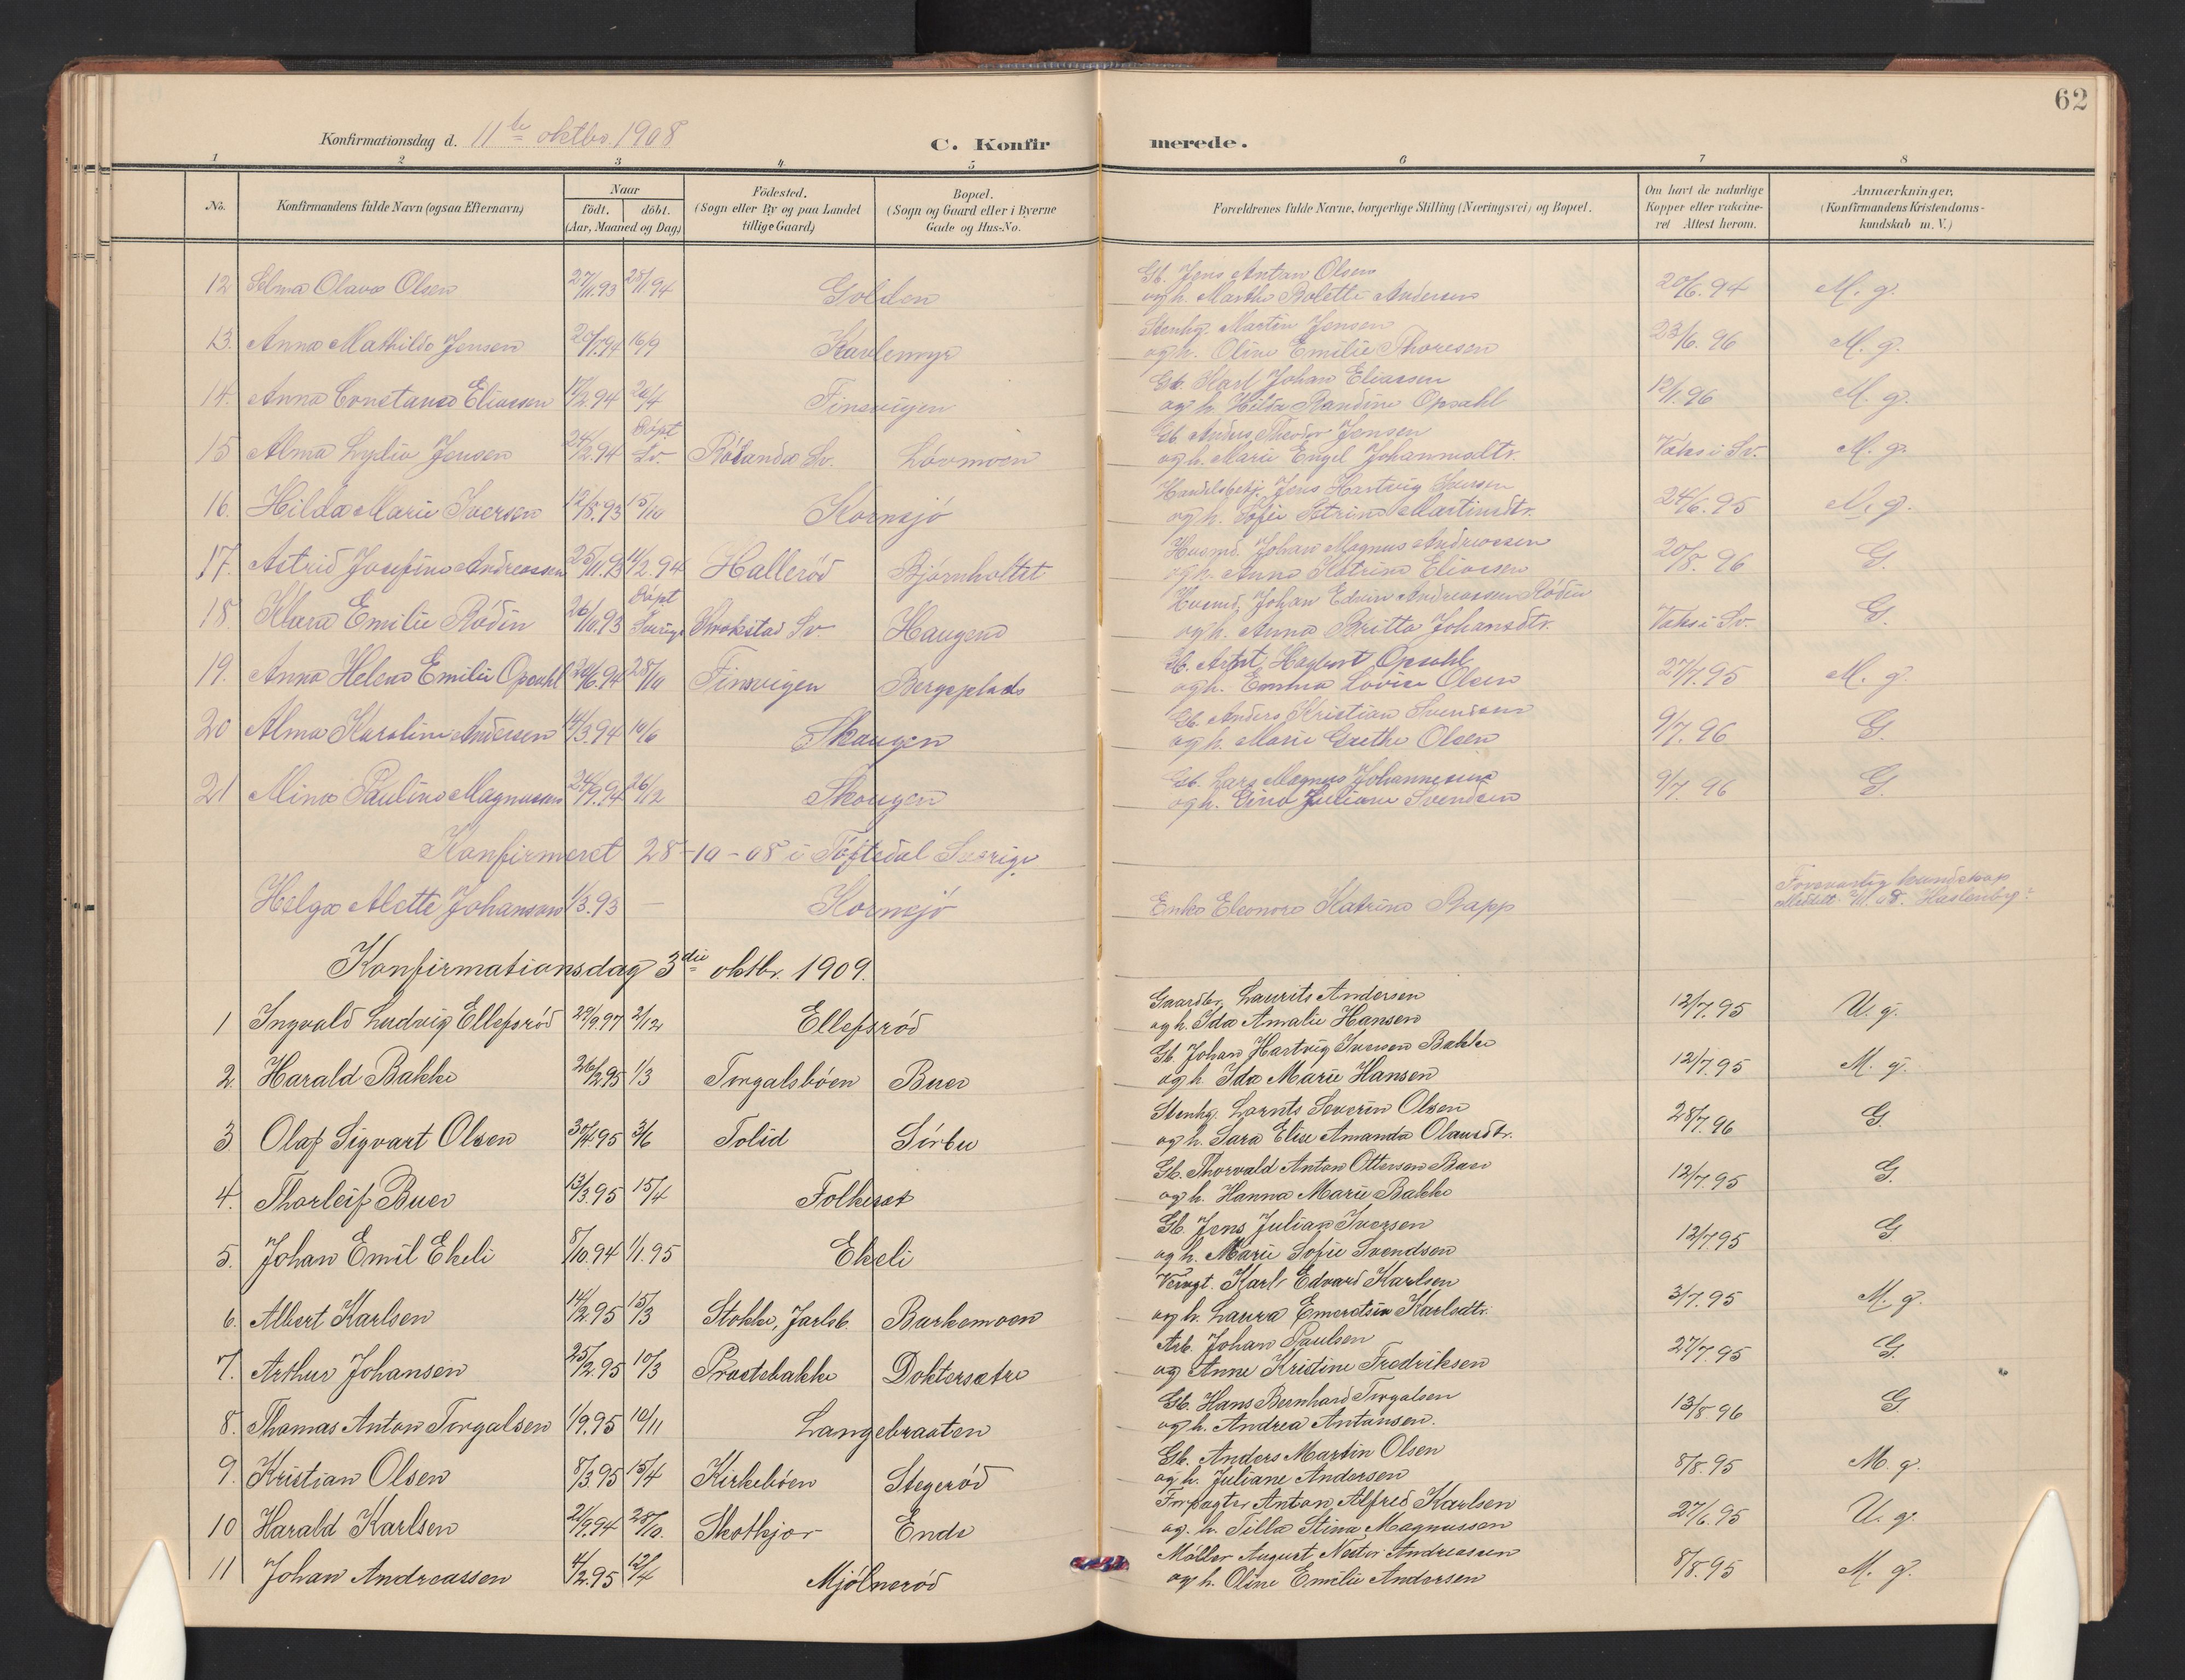 62
Konfirmationsdag d. 11te oktbr. 1908
C. Konfirmerede.
1 2 3 4 5 6 7 8
No.
Konfirmandens fulde Navn (ogsaa Efternavn)
Naar
födt. döbt.
(Aar, Maaned og Dag)
Födested.
(Sogn eller By og paa Landet
tillige Gaard)
Bopæl.
(Sogn og Gaard eller i Byerne
Gade og Hus-No.
Forældrenes fulde Navne, borgerlige Stilling (Næringsvei) og Bopæl.
Om havt de naturlige
Kopper eller vakcine-
ret Attest herom.
Anmærkninger,
(Konfirmandens Kristendoms-
kundskab m. V.)
12 Selma Olava Olsen 27/11.93 28/1 94 Golden Gb. Jens Antan Olsen
og h. Marthe Bolette Andersen 20/6.94 M. g.
13. Anna Mathilde Jensen 20/7.94 16/9 Kavlemyr Stenhg. Martin Jensen
og h. Oline Emilie Thoresen 23/6.96 M. g.
14. Anna Constance Eliassen 17/2.94 Finsvigen Gb. Karl Johan Eliassen
og h. Hilda Randine Opsahl 12/1.96 M. g.
15 Alma Lydia Jensen 24/2.94 Döpt Sv. Rölanda Sv. Lövmoen Gb. Theodor Jensen
og h. Marie Engel Johannesdtr. Vaks i Sv. M. g.
16. Hilda Marie Iversen 12/8.93 15/10 Kornsjö Handelsbetj. Jens Hartvig Iversen
og h. Sofie Petrine Martinsdtr. 24/6.95 M. g.
17. Astrid Josefine Andreassen 25/11.93 11/2.94 Halleröd Björnholtet Husmd. Johan Magnus Andreassen
og h. Anna Katrine Eliassen 20/8.96 G.
18. Klara Emilie Rödin 26/10.93 Döpt Sverige Krokstad Sv. Haugene Husmd. Johan Edvin Andreassen Rödin
og h. Anna Britta Johansdtr. Vaks i Sv. G.
19. Anna Helene Emilie Opsahl 20/6.94 28/10 Finsvigen Bergsplads Hagbart Opsahl
og h. Emma Lovise Olsen 27/7.95 M. g.
20 Alma Karoline Andersen 14/3.94 10/6 Skaugen Gb. Anders Kristian Svendsen
og h. Marie Grethe Olsen 9/7.96 G.
21 Mina Pauline Magnussen 24/9.94 26/12 Skougen Gb. Lars Magnus Johannesen
og h. Gina Juliane Svendsen 9/7 96 G.
Konfirmeret 28-10-08 i Töftedal Sverige
Helga Alette Johansen 1/3.93 — Kornsjö Enke Eleonore Katrine Rapp — Forsvarlig kundskap
Konfirmationsdag 3die oktbr. 1909.
1 Ingvald Ludvig Ellefsröd 29/9.97 2/12 Ellefsröd Gaardbr. Laurits Andersen
og h. Ida Amalie Hansen 12/7.95 U. g.
2. Harald Bakke 26/2.95 1/3 Torgalsböen Buer Gb. Johan Hartvig Iversen Bakke
og h. Ida Marie Hansen 12/7.95 M. g.
3. Olaf Sigvart Olsen 30/4.95 3/6 Tolid Sörbu Stenhg. Lornts Severin Olsen
og h. Sara Elise Amanda Olausdtr. 28/7.96 G.
4. Thorleif Buer 13/3.95 15/4 Folkeset Gb. Thorvald Anton Ottersen Buer
og h. Hanna Marie Bakke 12/7.95 G.
5. Johan Emil Ekeli 8/10.94 1/1.95 Ekeli Gb. Jens Julian Iversen
og h. Marie Sofie Svendsen 12/7.95 G
6. Albert Karlsen 14/2.95 15/3 Stokke, Jarlsb. Barkemoen Veivgt. Karl Edvard Karlsen
og h. Laura Emerentsia Karlsdtr. 3/7.95 M. g.
7. Arthur Johansen 25/2.95 10/3 Prestebakke Doktersætre Arb. Johan Paulsen
og Anne Kristine Fredriksen 27/7.95 G.
8. Thomas Anton Torgalsen 1/9.95 10/11 Langebraaten Gb. Hans Bernhard Torgalsen
og h. Andrea Antonsen. 13/8.96 G
9. Kristian Olsen 8/3.95 15/4 Kirkeböen Stegeröd Gb. Anders Martin Olsen
og h. Juliane Andersen 8/8.95 M. g.
10 Harald Karlsen 21/9.94 28/10. Skotkjær Ende Forpagter Anton Alfred Karlsen
og. h. Tilla Stina Magnussen 27/6.95 U. g.
11 Johan Andreassen 4/2.95 12/4 Mjölneröd Möller August Nestor Andreassen
og h. Oline Emilie Andersen 8/8.95 M. g.